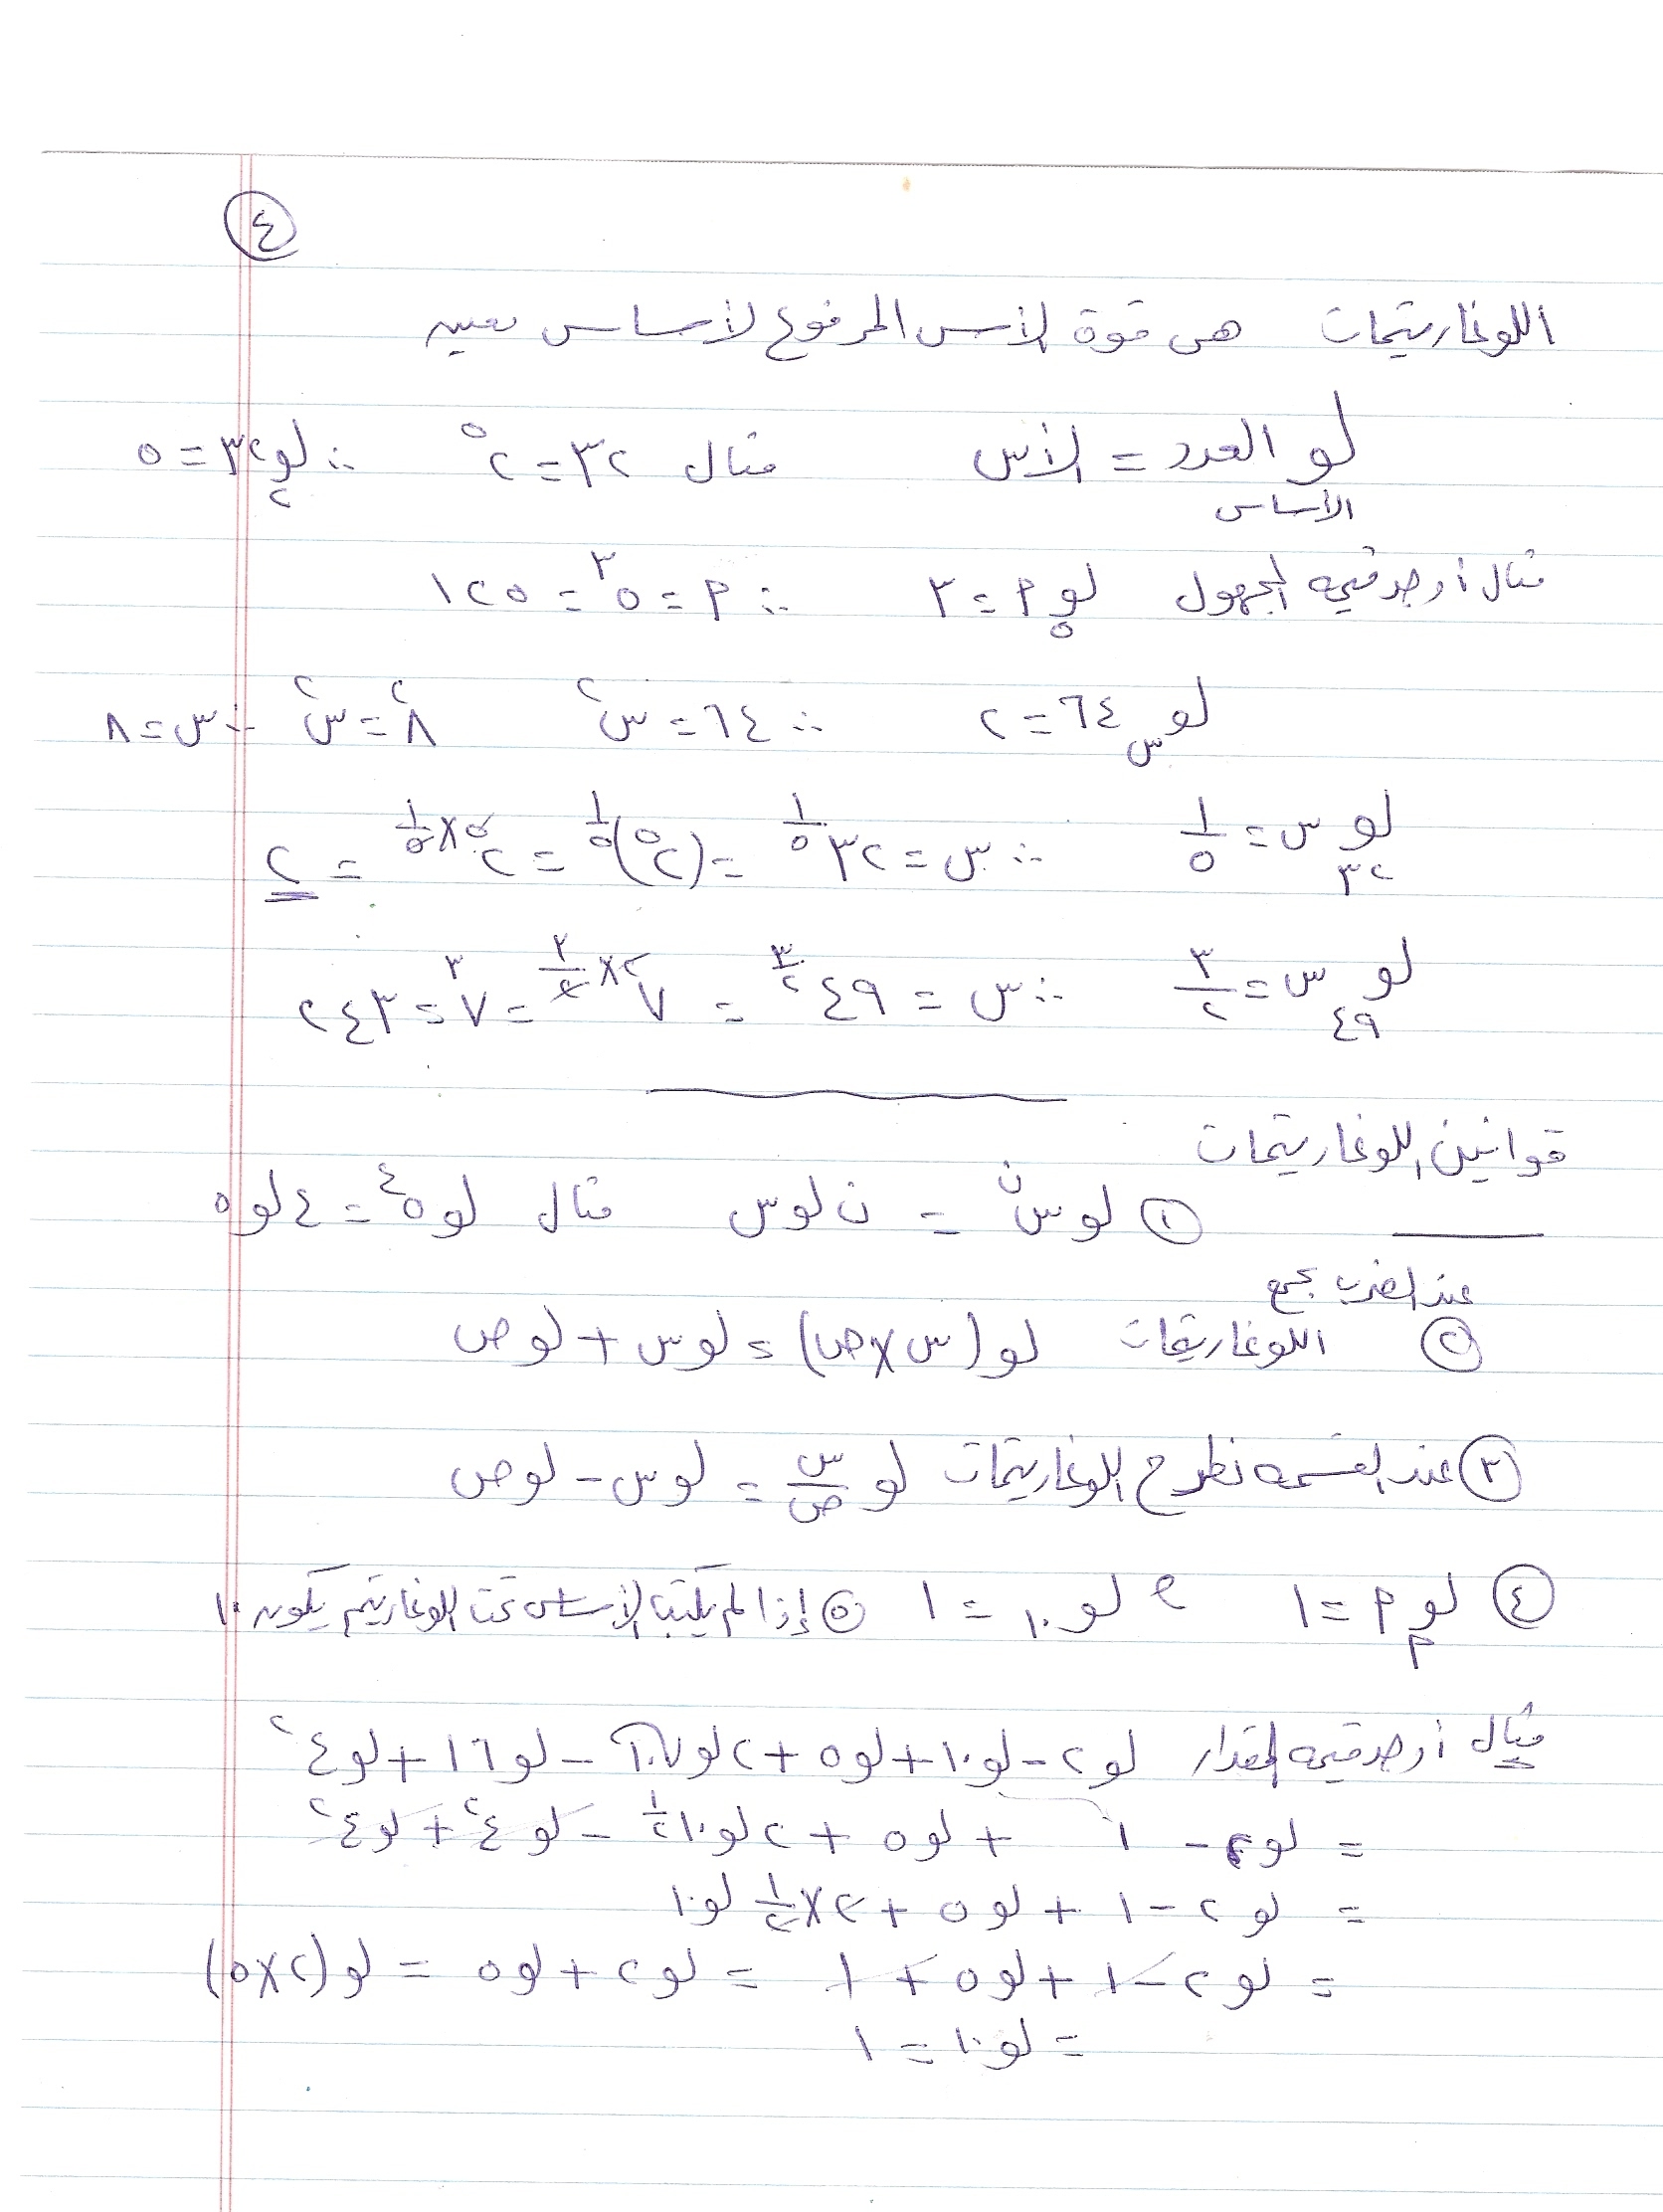 ٤
اللوغاريتمات هى قوة الأس المرفوع لأساس معين
لو العدد = الأس مثال ٣٢ = ٢^٥ ∴ لو_٢ ٣٢ = ٥
الأساس
مثال أوجد قيمة المجهول لو_٥ م = ٣ ∴ م = ٥^٣ = ١٢٥
لو_س ٦٤ = ٢ ∴ ٦٤ = س^٢ ٨^٢ = س^٢ ∴ س = ٨
لو_٣٢ س = ١/٥ ∴ س = ٣٢^(١/٥) = (٢^٥)^(١/٥) = ٢^(٥×١/٥) = ٢
لو_٤٩ س = ٣/٢ ∴ س = ٤٩^(٣/٢) = ٧^(٢×٣/٢) = ٧^٣ = ٢٤٣
قوانين اللوغاريتمات
١ لو س^ن = ن لو س مثال لو ٥^٤ = ٤ لو ٥
عند الضرب نجمع
٢ اللوغاريتمات لو (س × ص) = لو س + لو ص
٣ عند القسمه نطرح اللوغاريتمات لو س/ص = لو س - لو ص
٤ لو_م م = ١ ، لو ١٠ = ١ ٥ إذا لم يكتب الأساس تحت اللوغاريتم يكون ١٠
مثال أوجد قيمة المقدار لو ٢ - لو ١٠ + لو ٥ + ٢ لو √١٠ - لو ١٦ + لو ٤^٢
= لو ٢ - ١ + لو ٥ + ٢ لو ١٠^(١/٢) - لو ٤^٢ + لو ٤^٢
= لو ٢ - ١ + لو ٥ + ٢ × ١/٢ لو ١٠
= لو ٢ - ١ + لو ٥ + ١ = لو ٢ + لو ٥ = لو (٢ × ٥)
= لو ١٠ = ١